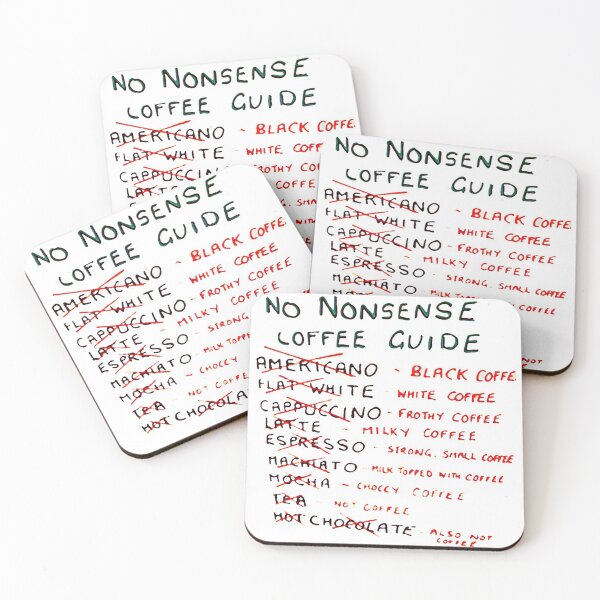 NO NONSENSE
COFFEE GUIDE
AMERICANO - BLACK COFFE
FLAT WHITE - WHITE COFFE
CAPPUCCINO - FROTHY
LATTE COFFEE
SMALL
WITH
NO NONSENSE
COFFEE GUIDE
AMERICANO - BLACK COFFE
FLAT WHITE - WHITE COFFEE
CAPPUCCINO - FROTHY COFFEE
LATTE - MILKY COFFEE
ESPRESSO - STRONG. SMALL COFFEE
MACHIATO - MILK TOPPED WITH COFFEE
NOT
NO NONSENSE
COFFEE GUIDE
AMERICANO - BLACK COFFE
FLAT WHITE - WHITE COFFEE
CAPPUCCINO - FROTHY COFFEE
LATTE - MILKY COFFEE
ESPRESSO - STRONG.
MACHIATO - MILK TOPPED
MOCHA - CHOCCY
TEA - NOT COFFEE
HOT CHOCOLA
NO NONSENSE
COFFEE GUIDE
AMERICANO - BLACK COFFE
FLAT WHITE - WHITE COFFEE
CAPPUCCINO - FROTHY COFFEE
LATTE - MILKY COFFEE
ESPRESSO - STRONG. SMALL COFFEE
MACHIATO - MILK TOPPED WITH COFFEE
MOCHA - CHOCCY COFFEE
TEA - NOT COFFEE
HOT CHOCOLATE - ALSO NOT
COFFEE